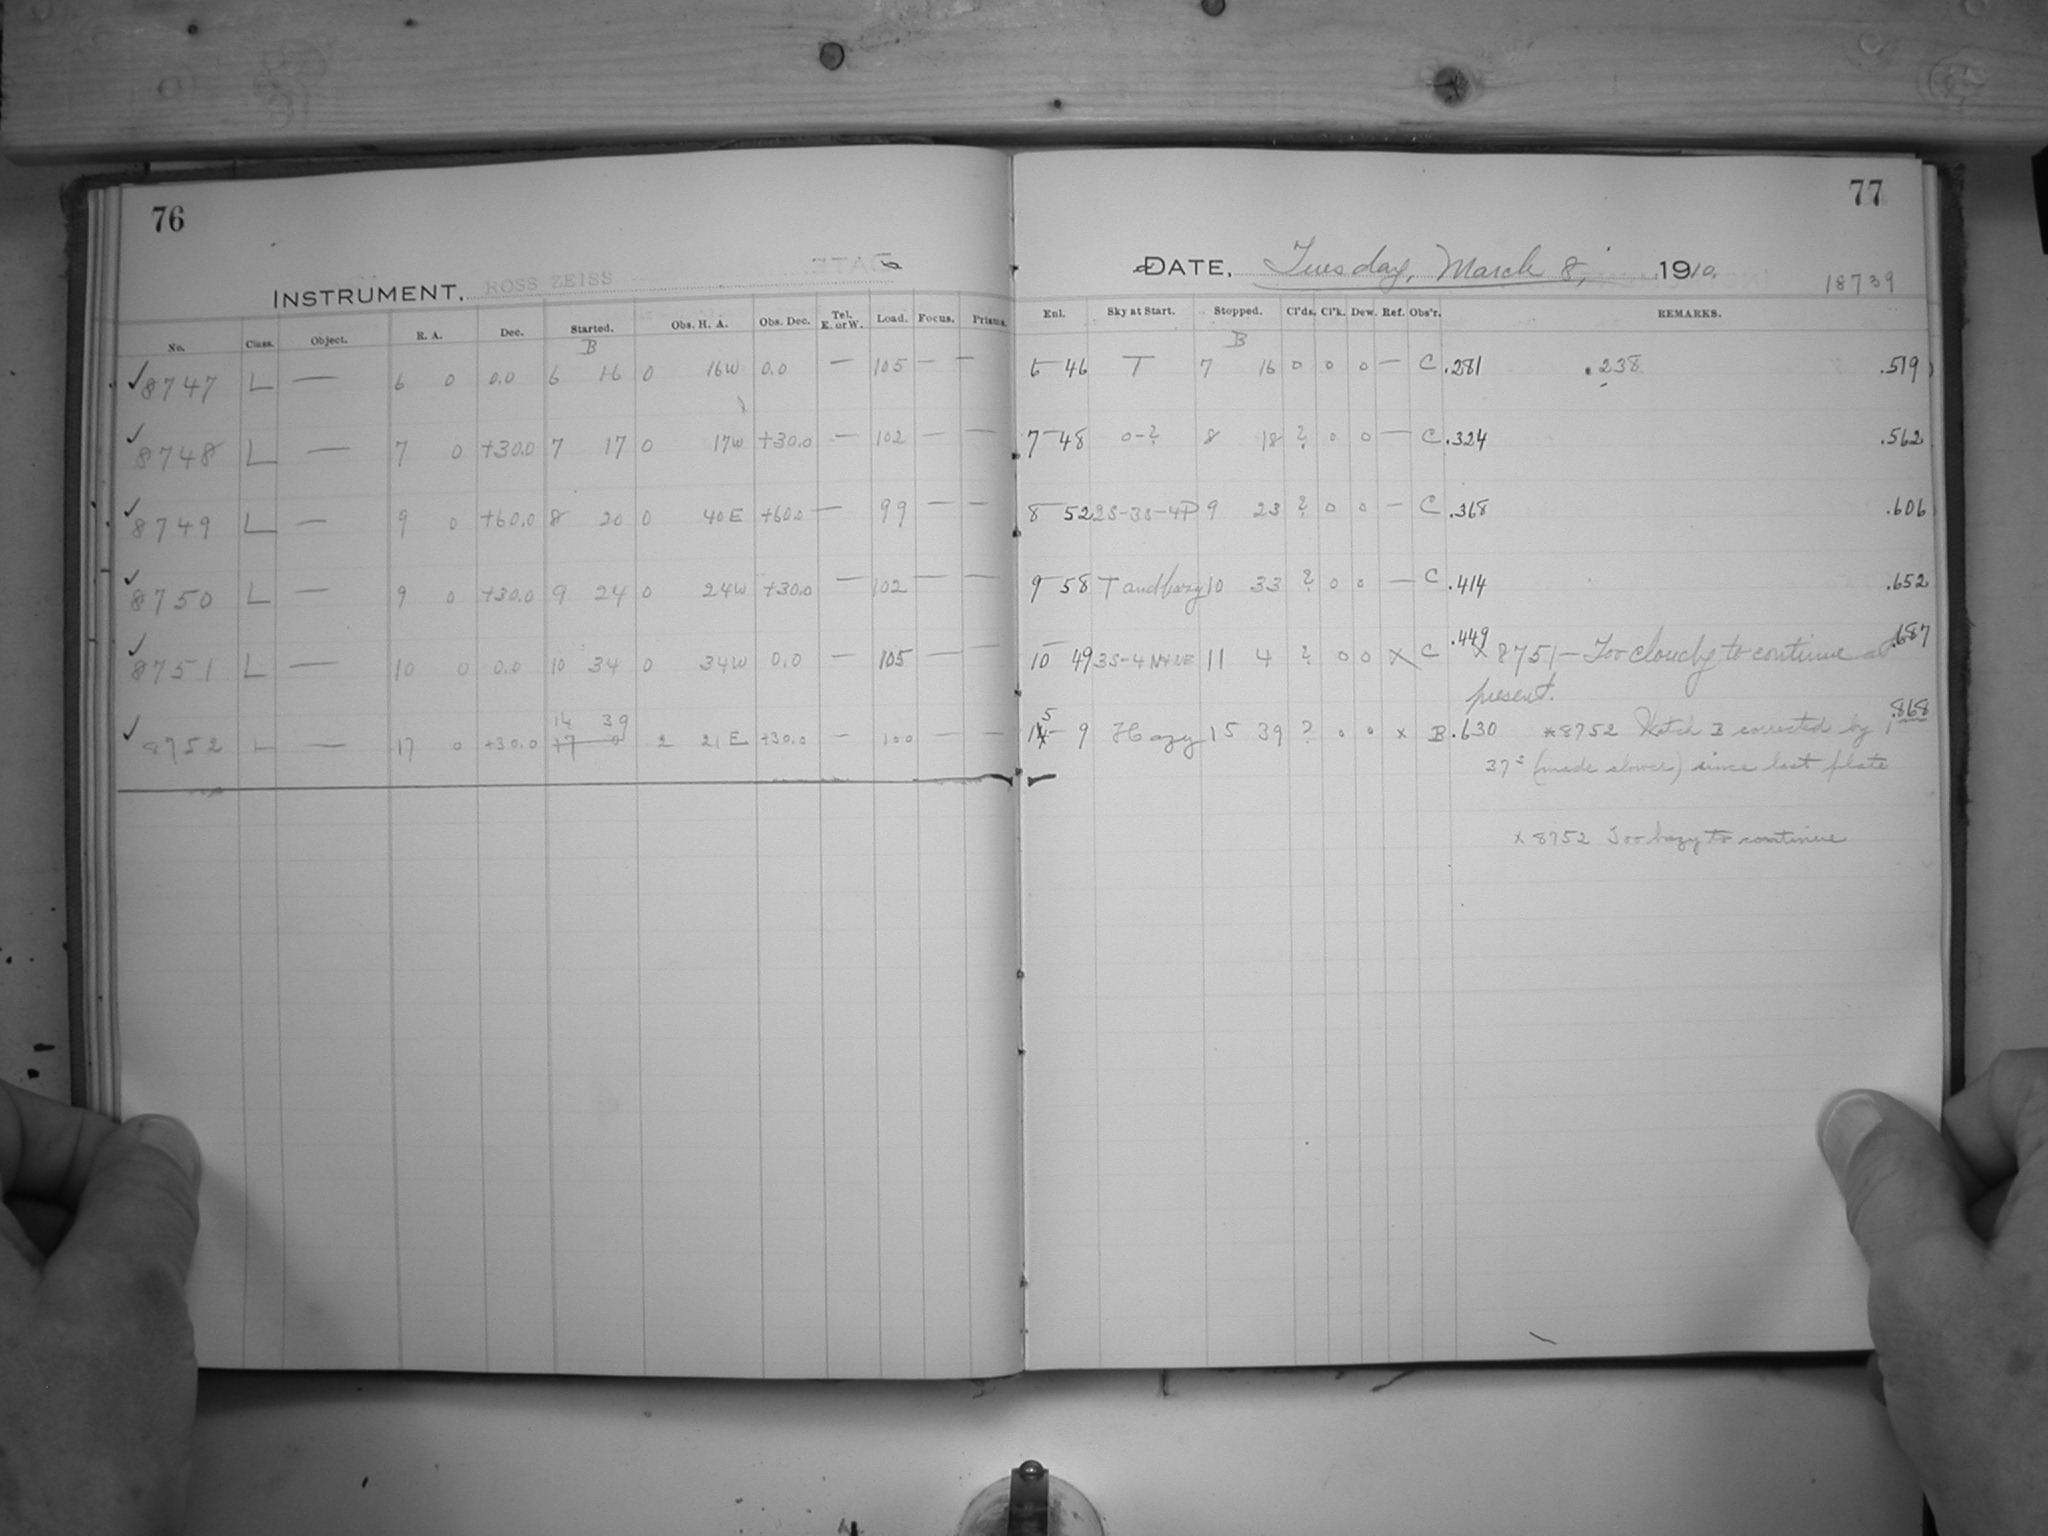 76
INSTRUMENT, ROSS ZEISS
No. Class. Object. R. A. Dec. Started. Obs. H. A. Obs. Dec. Tel. E. or W. Load. Focus. Prisms.
B
✓ 8747 L — 6 0 0.0 6 16 0 16W 0.0 — 105 — —
✓ 8748 L — 7 0 +30.0 7 17 0 17W +30.0 — 102 — —
✓ 8749 L — 9 0 +60.0 8 20 0 40E +60.0 — 99 — —
✓ 8750 L — 9 0 +30.0 9 24 0 24W +30.0 — 102 — —
✓ 8751 L — 10 0 0.0 10 34 0 34W 0.0 — 105 — —
14 39
✓ 8752 L — 17 0 +30.0 17 0 2 21E +30.0 — 100 — —
77
DATE, Tuesday, March 8, 1910.
18739
Enl. Sky at Start. Stopped. Cl'ds. Cl'k. Dew. Ref. Obs'r. REMARKS.
B
6 46 T 7 16 0 0 0 — C .281 .238 .519
7 48 0-? 8 18 ? 0 0 — C .324 .562
8 52 2S-3S-4P 9 23 ? 0 0 — C .368 .606
9 58 T and hazy 10 33 ? 0 0 — C .414 .652
10 49 3S-4 11 4 ? 0 0 X C .449 X 8751— Too cloudy to continue at .687
present.
15 9 Hazy 15 39 ? 0 0 x B .630 *8752 Watch B corrected by .868
37s (made slower) since last plate
x 8752 Too hazy to continue